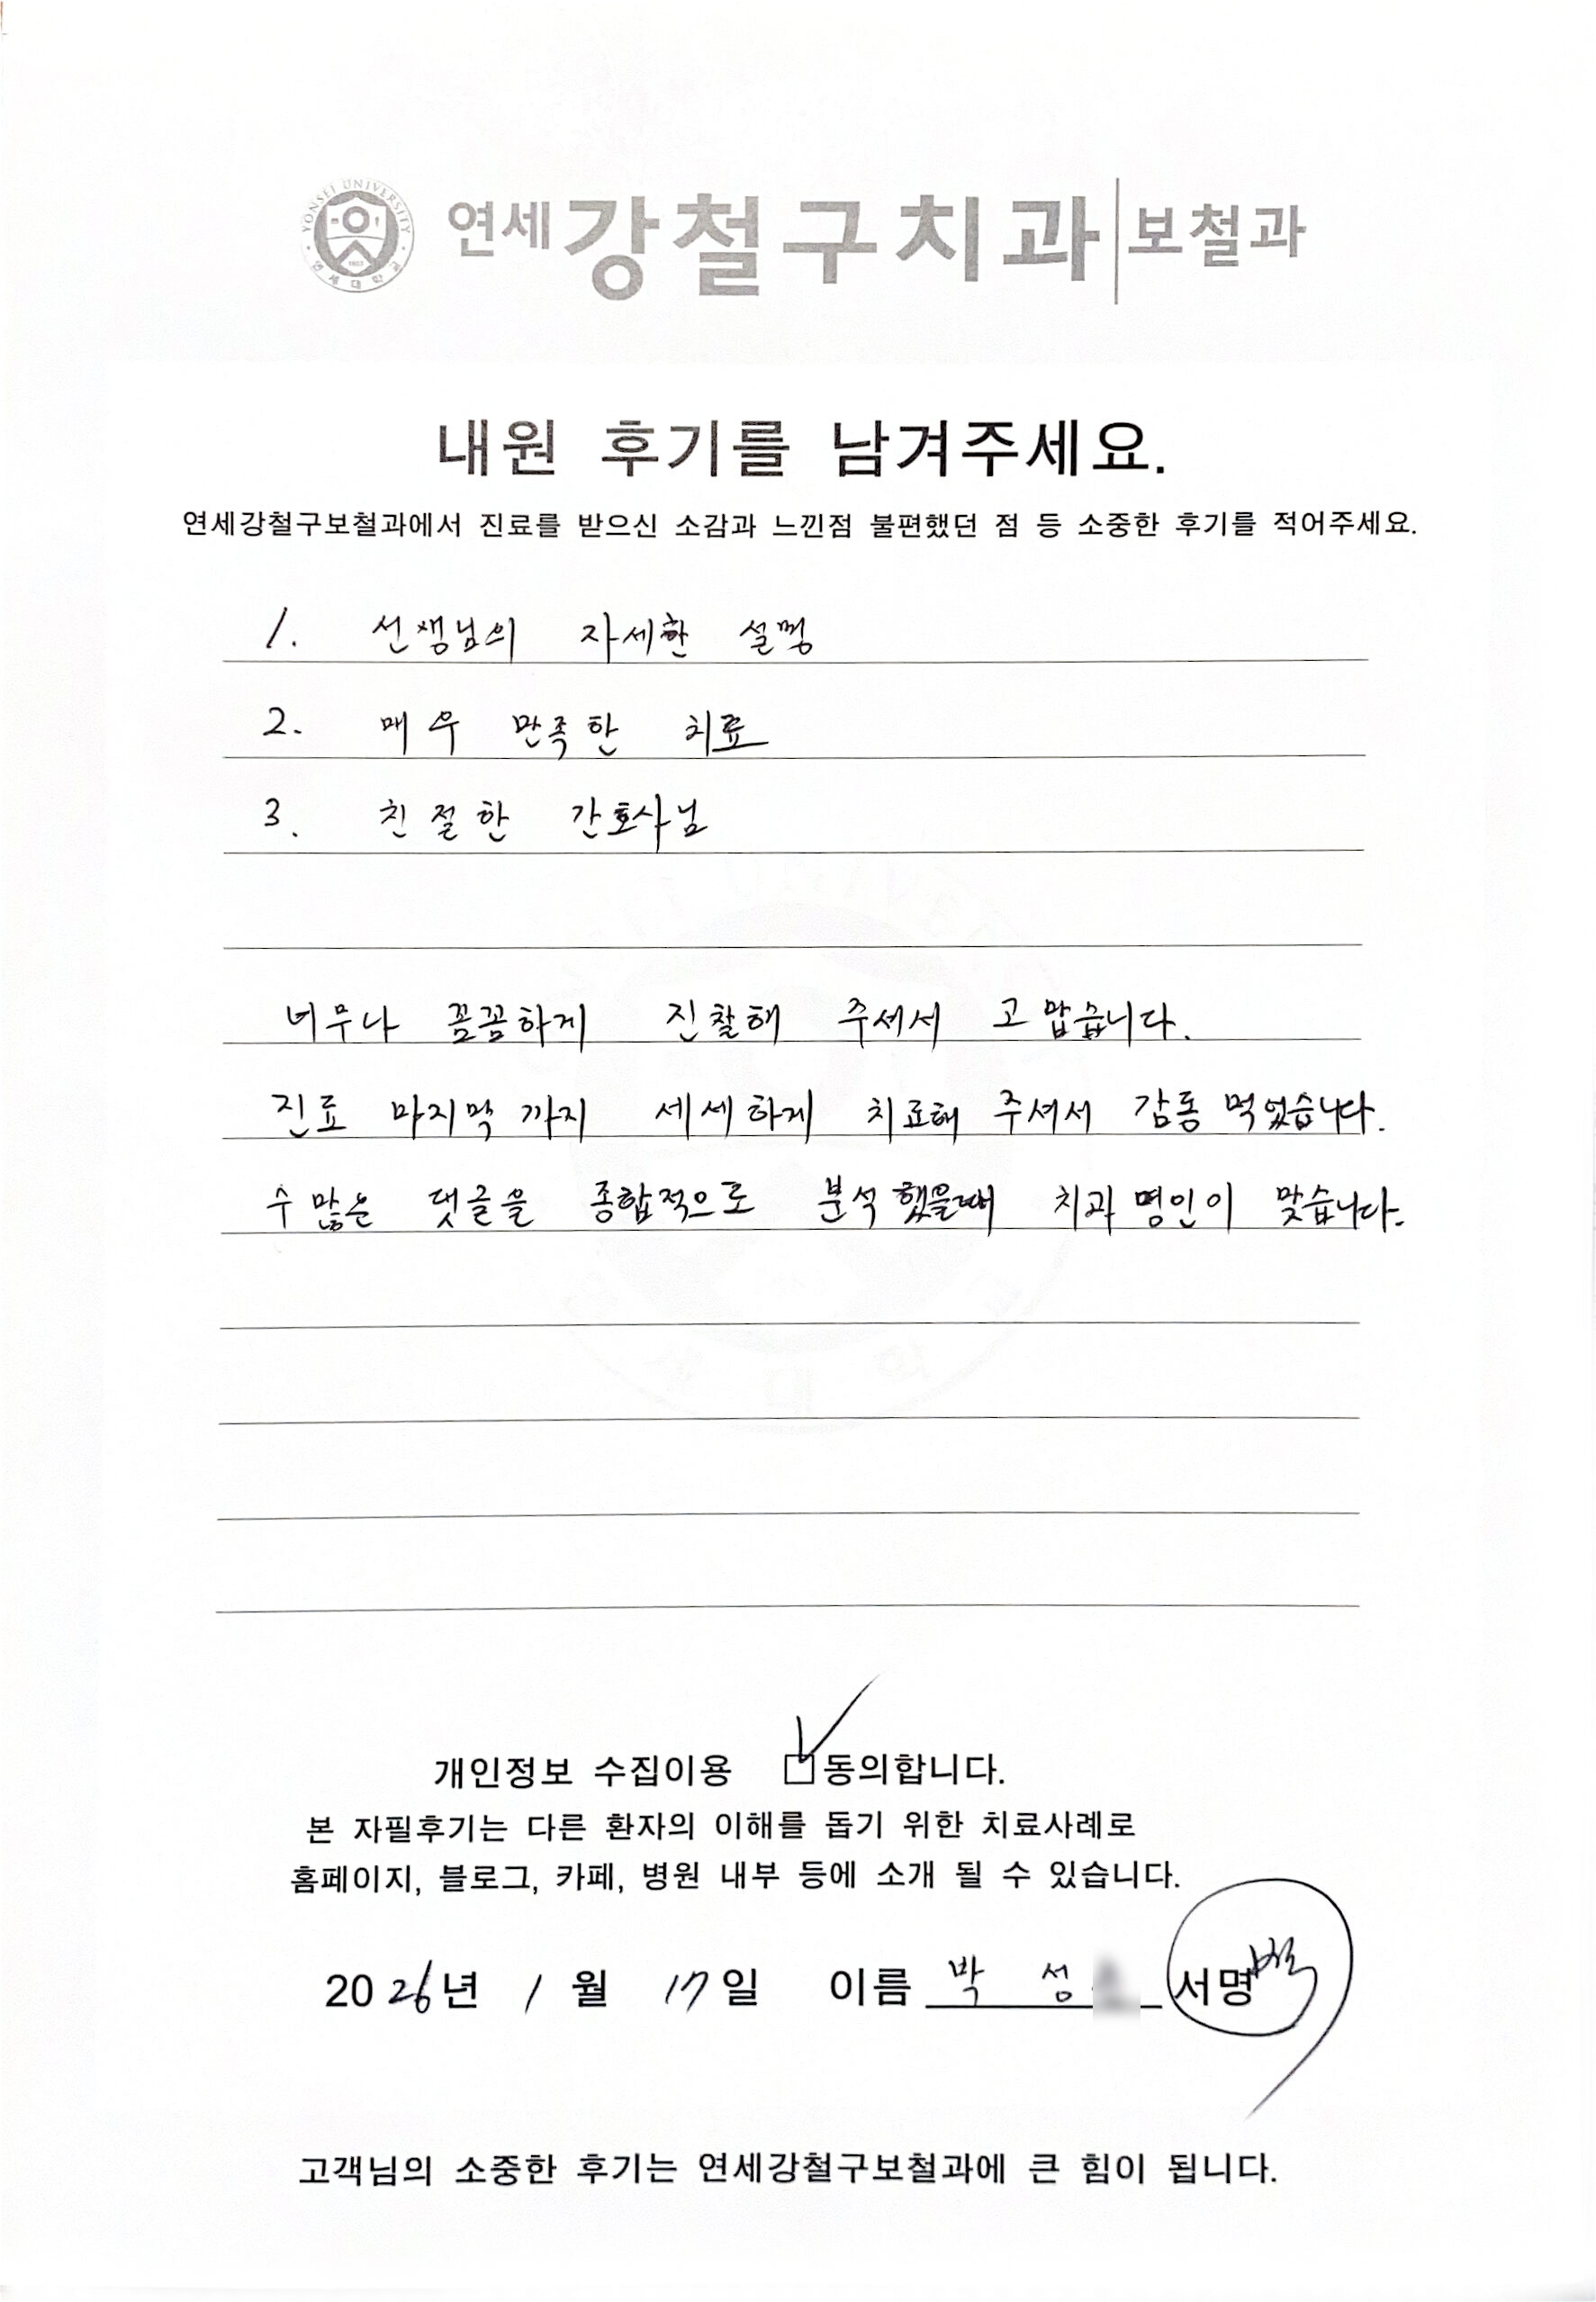 YONSEI UNIVERSITY
연세대학교
연세강철구치과 보철과
내원 후기를 남겨주세요.
연세강철구보철과에서 진료를 받으신 소감과 느낀점 불편했던 점 등 소중한 후기를 적어주세요.
1. 선생님의 자세한 설명
2. 매우 만족한 치료
3. 친절한 간호사님
너무나 꼼꼼하게 진찰해 주셔서 고맙습니다.
진료 마지막 까지 세세하게 치료해 주셔서 감동 먹었습니다.
수 많은 댓글을 종합적으로 분석 했을때 치과 명인이 맞습니다.
개인정보 수집이용 동의합니다.
본 자필후기는 다른 환자의 이해를 돕기 위한 치료사례로
홈페이지, 블로그, 카페, 병원 내부 등에 소개 될 수 있습니다.
2026년 1월 17일 이름 박 성 서명
고객님의 소중한 후기는 연세강철구보철과에 큰 힘이 됩니다.